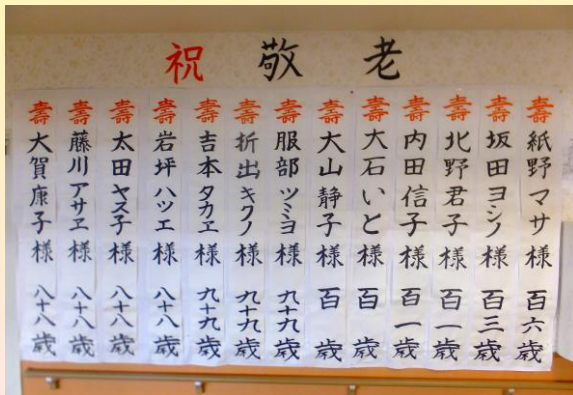 祝敬老
壽 紙野マサ様 百六歳
壽 坂田ヨシノ様 百三歳
壽 北野君子様 百一歳
壽 内田信子様 百一歳
壽 大石いと様 百歳
壽 大山静子様 百歳
壽 服部ツミヨ様 九十九歳
壽 折出キクノ様 九十九歳
壽 吉本タカヱ様 九十九歳
壽 岩坪ハツエ様 八十八歳
壽 太田ヤス子様 八十八歳
壽 藤川アサヱ様 八十八歳
壽 大賀康子様 八十八歳